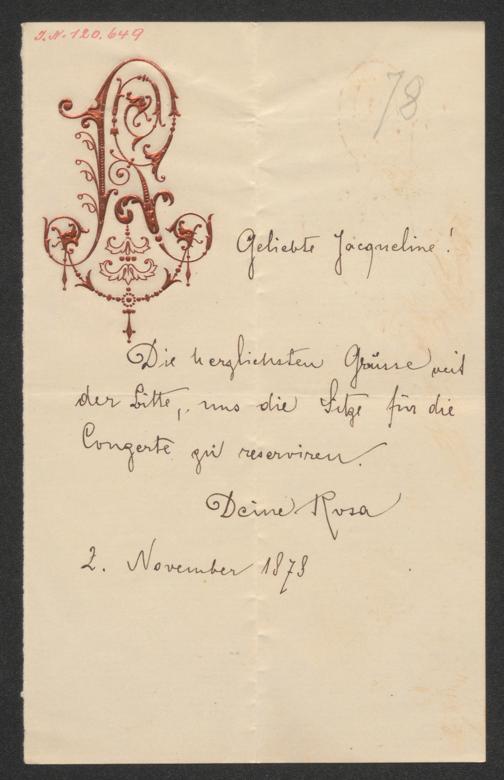 J.N. 120.649
R
78
Geliebte Jacqueline!
Die herzlichsten Grüsse mit
der Bitte, uns die Sitze für die
Conzerte zu reserviren.
Deine Rosa
2. November 1878